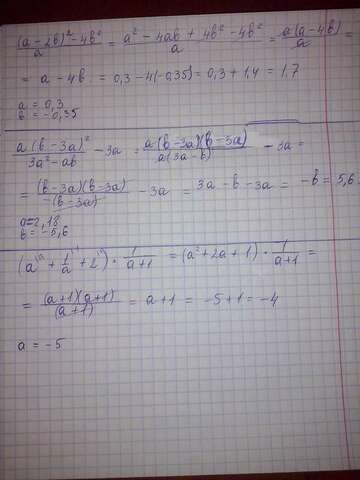 (a - 2b)² - 4b² / a = a² - 4ab + 4b² - 4b² / a = a(a - 4b) / a =
= a - 4b = 0,3 - 4(-0,35) = 0,3 + 1,4 = 1,7
a = 0,3
b = -0,35
a(b - 3a)² / 3a² - ab - 3a = a(b - 3a)(b - 3a) / a(3a - b) - 3a =
= (b - 3a)(b - 3a) / -(b - 3a) - 3a = 3a - b - 3a = -b = 5,6
a = 2,18
b = -5,6
(a + 1/a + 2) · 1/a+1 = (a² + 2a + 1) · 1/a+1 =
= (a+1)(a+1) / (a+1) = a + 1 = -5 + 1 = -4
a = -5